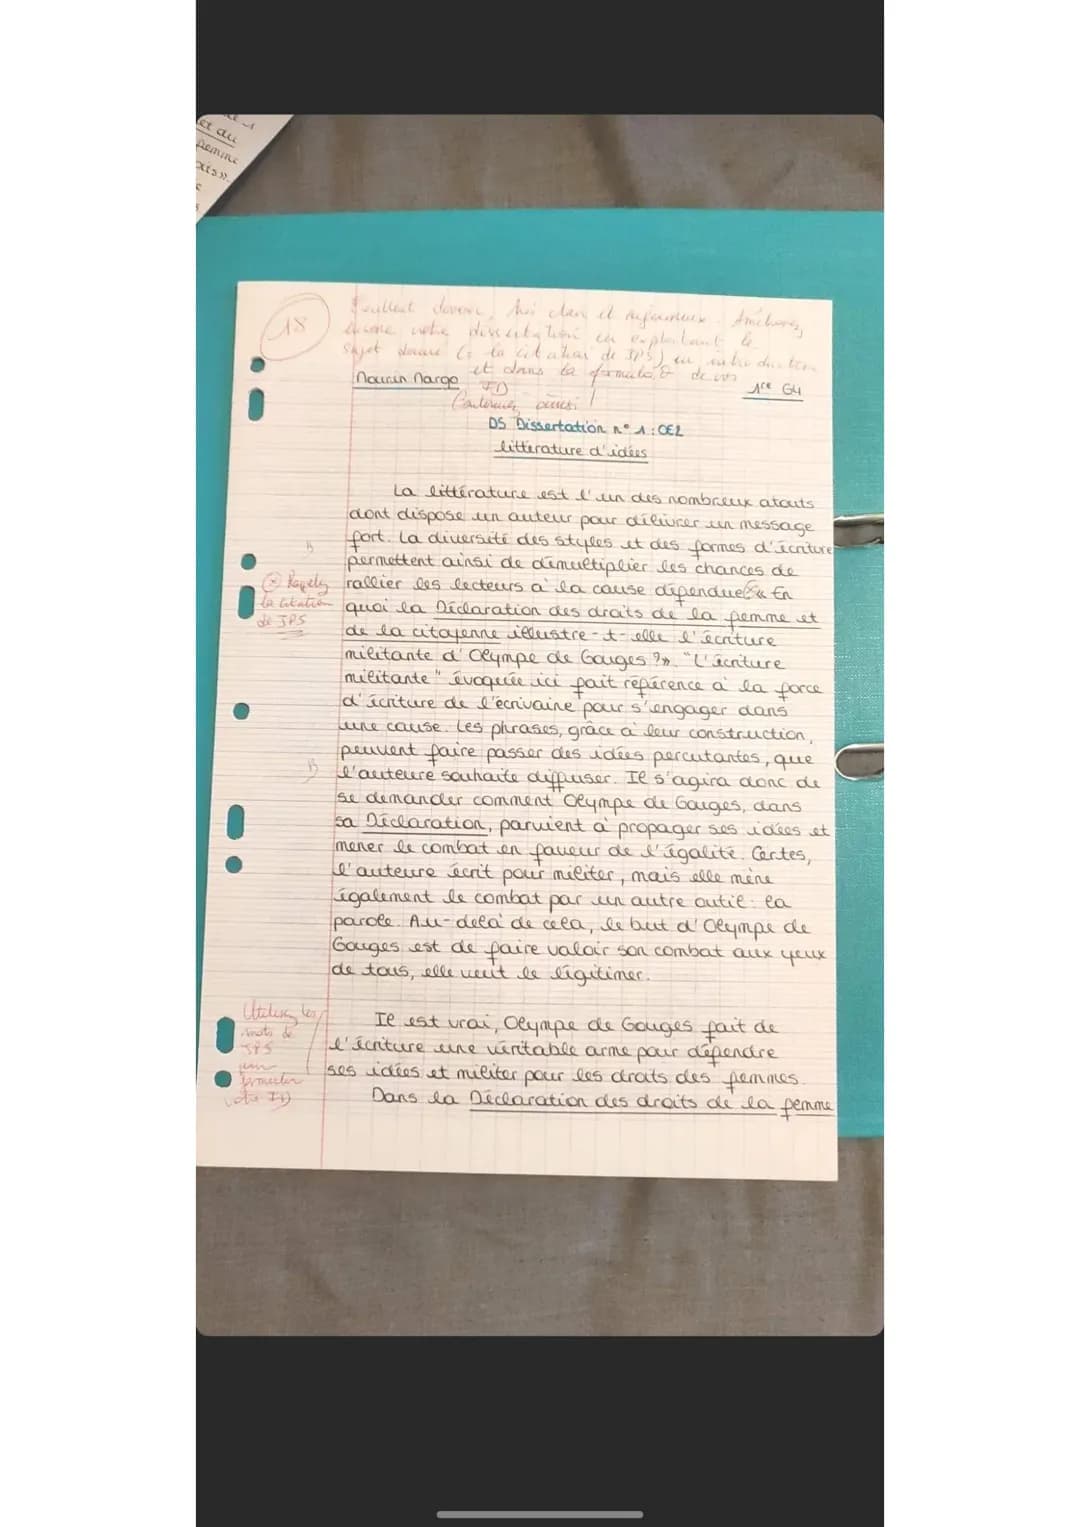 et du
18
Excellent devoir, très clair et rigoureux. Améliorez
encore votre dissertation en exploitant le
sujet donné (et la citation de JPS) en introduction
et dans la formulat° de vos
Mourin Margo
ID
1re G4
Continuez ainsi !
DS Dissertation n° 1 : OE2
littérature d'idées
La littérature est l'un des nombreux atouts
dont dispose un auteur pour délivrer un message
fort. La diversité des styles et des formes d'écriture
B
permettent ainsi de démultiplier les chances de
Rappelez
rallier les lecteurs à la cause défendue. « En
la citation
quoi la Déclaration des droits de la femme et
de JPS
de la citoyenne illustre-t-elle l'écriture
militante d'Olympe de Gouges ?». "L'écriture
militante" évoquée ici fait référence à la force
d'écriture de l'écrivaine pour s'engager dans
une cause. Les phrases, grâce à leur construction,
peuvent faire passer des idées percutantes, que
B
l'auteure souhaite diffuser. Il s'agira donc de
se demander comment Olympe de Gouges, dans
sa Déclaration, parvient à propager ses idées et
mener le combat en faveur de l'égalité. Certes,
l'auteure écrit pour militer, mais elle mène
également le combat par un autre outil : la
parole. Au-delà de cela, le but d'Olympe de
Gouges est de faire valoir son combat aux yeux
de tous, elle veut le légitimer.
Utilisez les
mots de
JPS
pour
formuler
votre ID
Il est vrai, Olympe de Gouges fait de
l'écriture une véritable arme pour défendre
ses idées et militer pour les droits des femmes.
Dans la Déclaration des droits de la femme